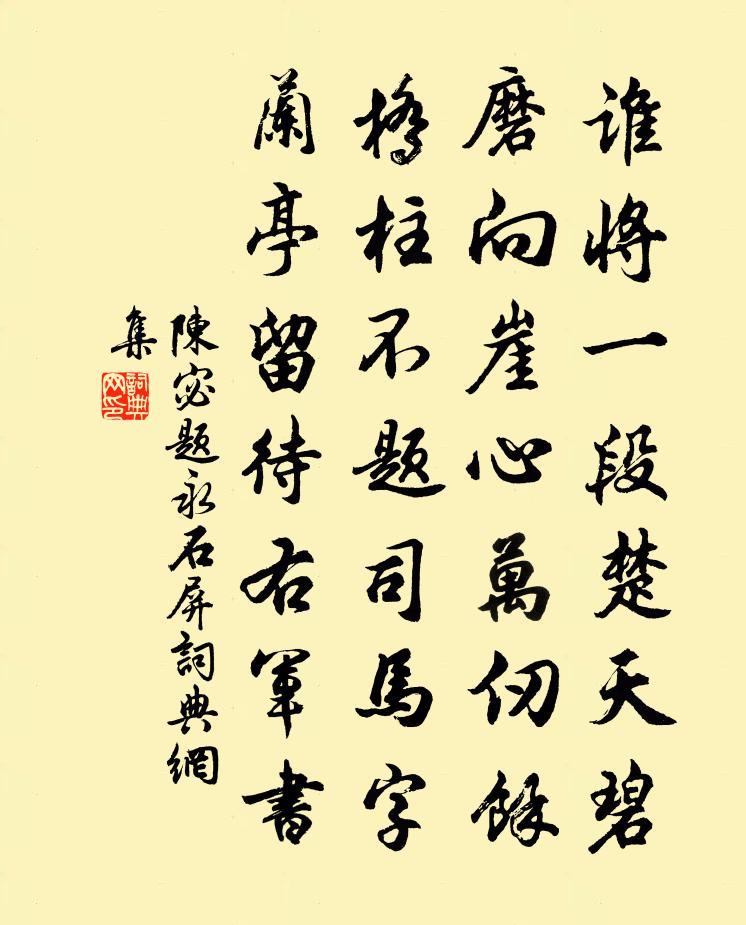 谁將一段楚天碧
磨向崖心萬仞餘
橋柱不題司馬字
蘭亭留待右軍書
陳宓題永石屏詞典網
集
詞典网印